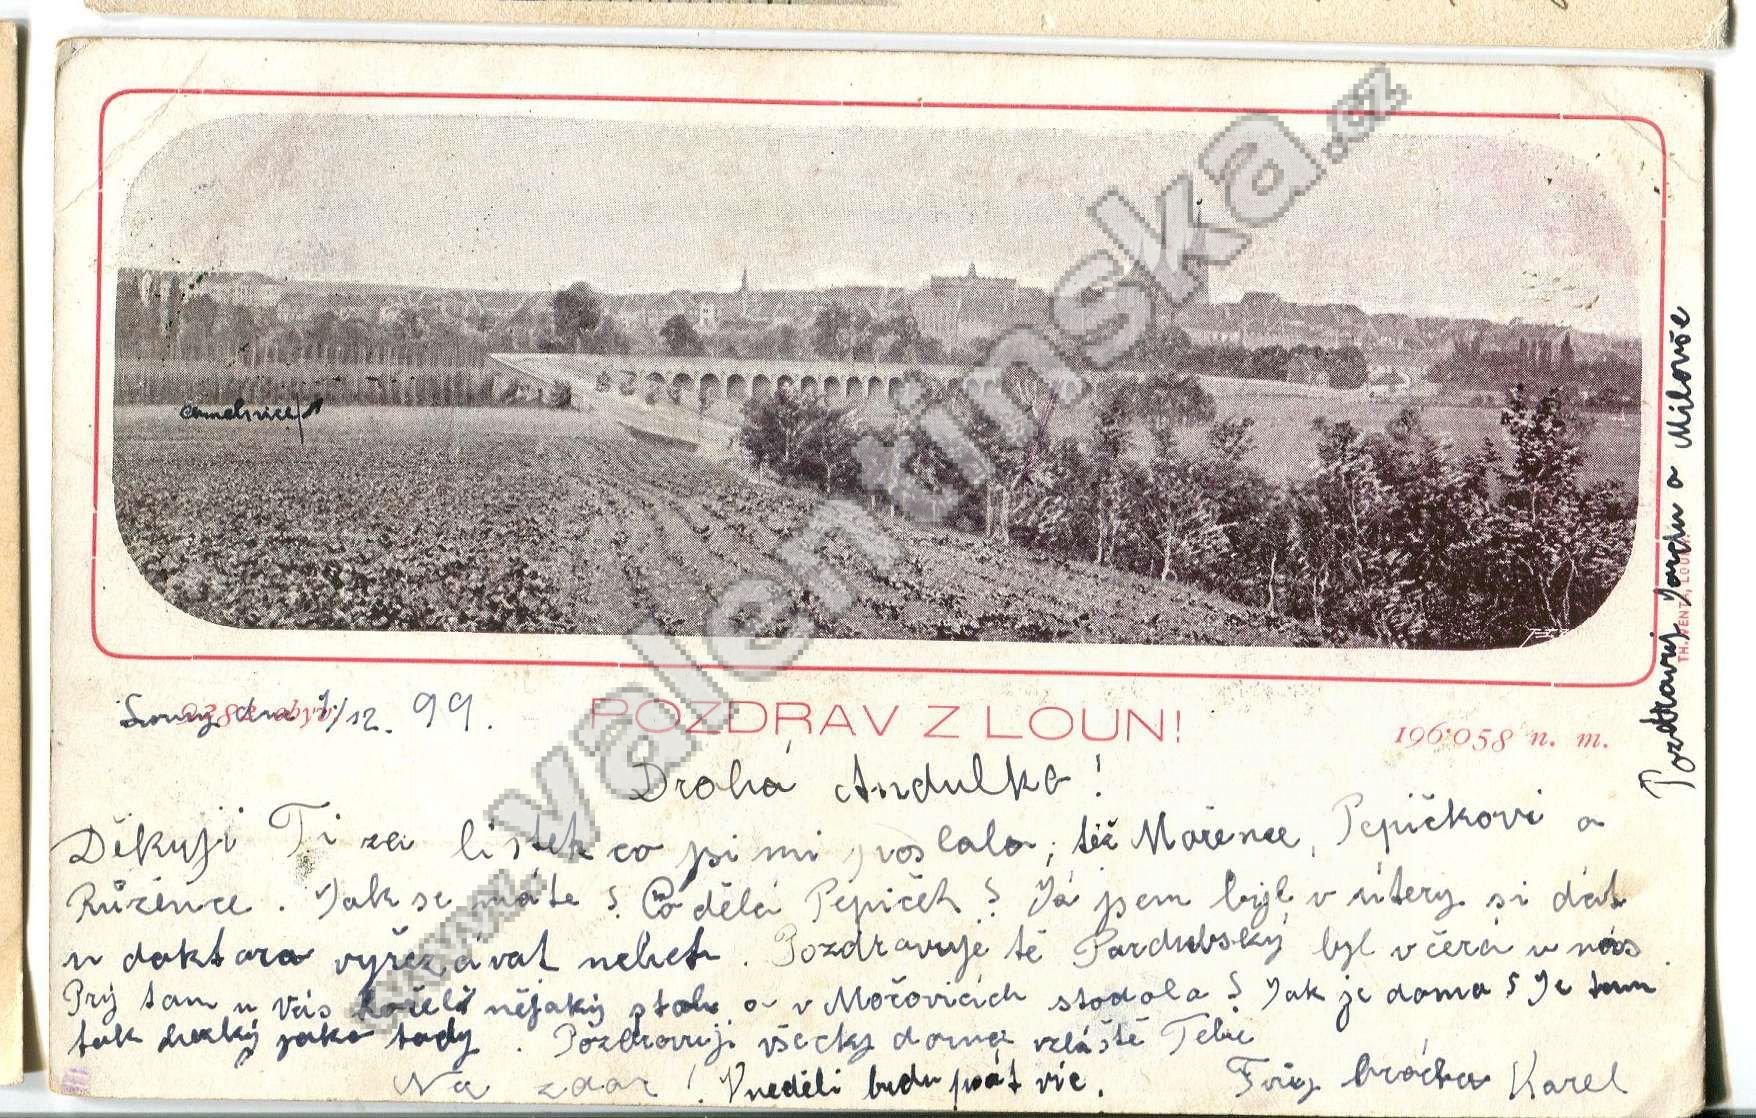 www.valentinska.cz
Louny dne 7/12. 99.
POZDRAV Z LOUN!
196·058 n. m.
Drahá Andulko!
Děkuji Ti za lístek co jsi mi poslala, též Mařence, Pepíčkovi a
Růžence. Jak se máte? Co dělá Pepíček? Já jsem byl v úterý si dát
u doktora vyřezávat nehet. Pozdravuje tě Pardubský byl včera u nás.
Prý tam u Vás hořel nějaký stoh a v Mořovicích stodola? Jak je doma? Je tam
tak hezky jako tady. Pozdravuji všecky doma zvláště Tebe
Na zdar! V neděli budu psát víc. Tvůj brácha Karel
Pozdravuj Jardu a Miloše